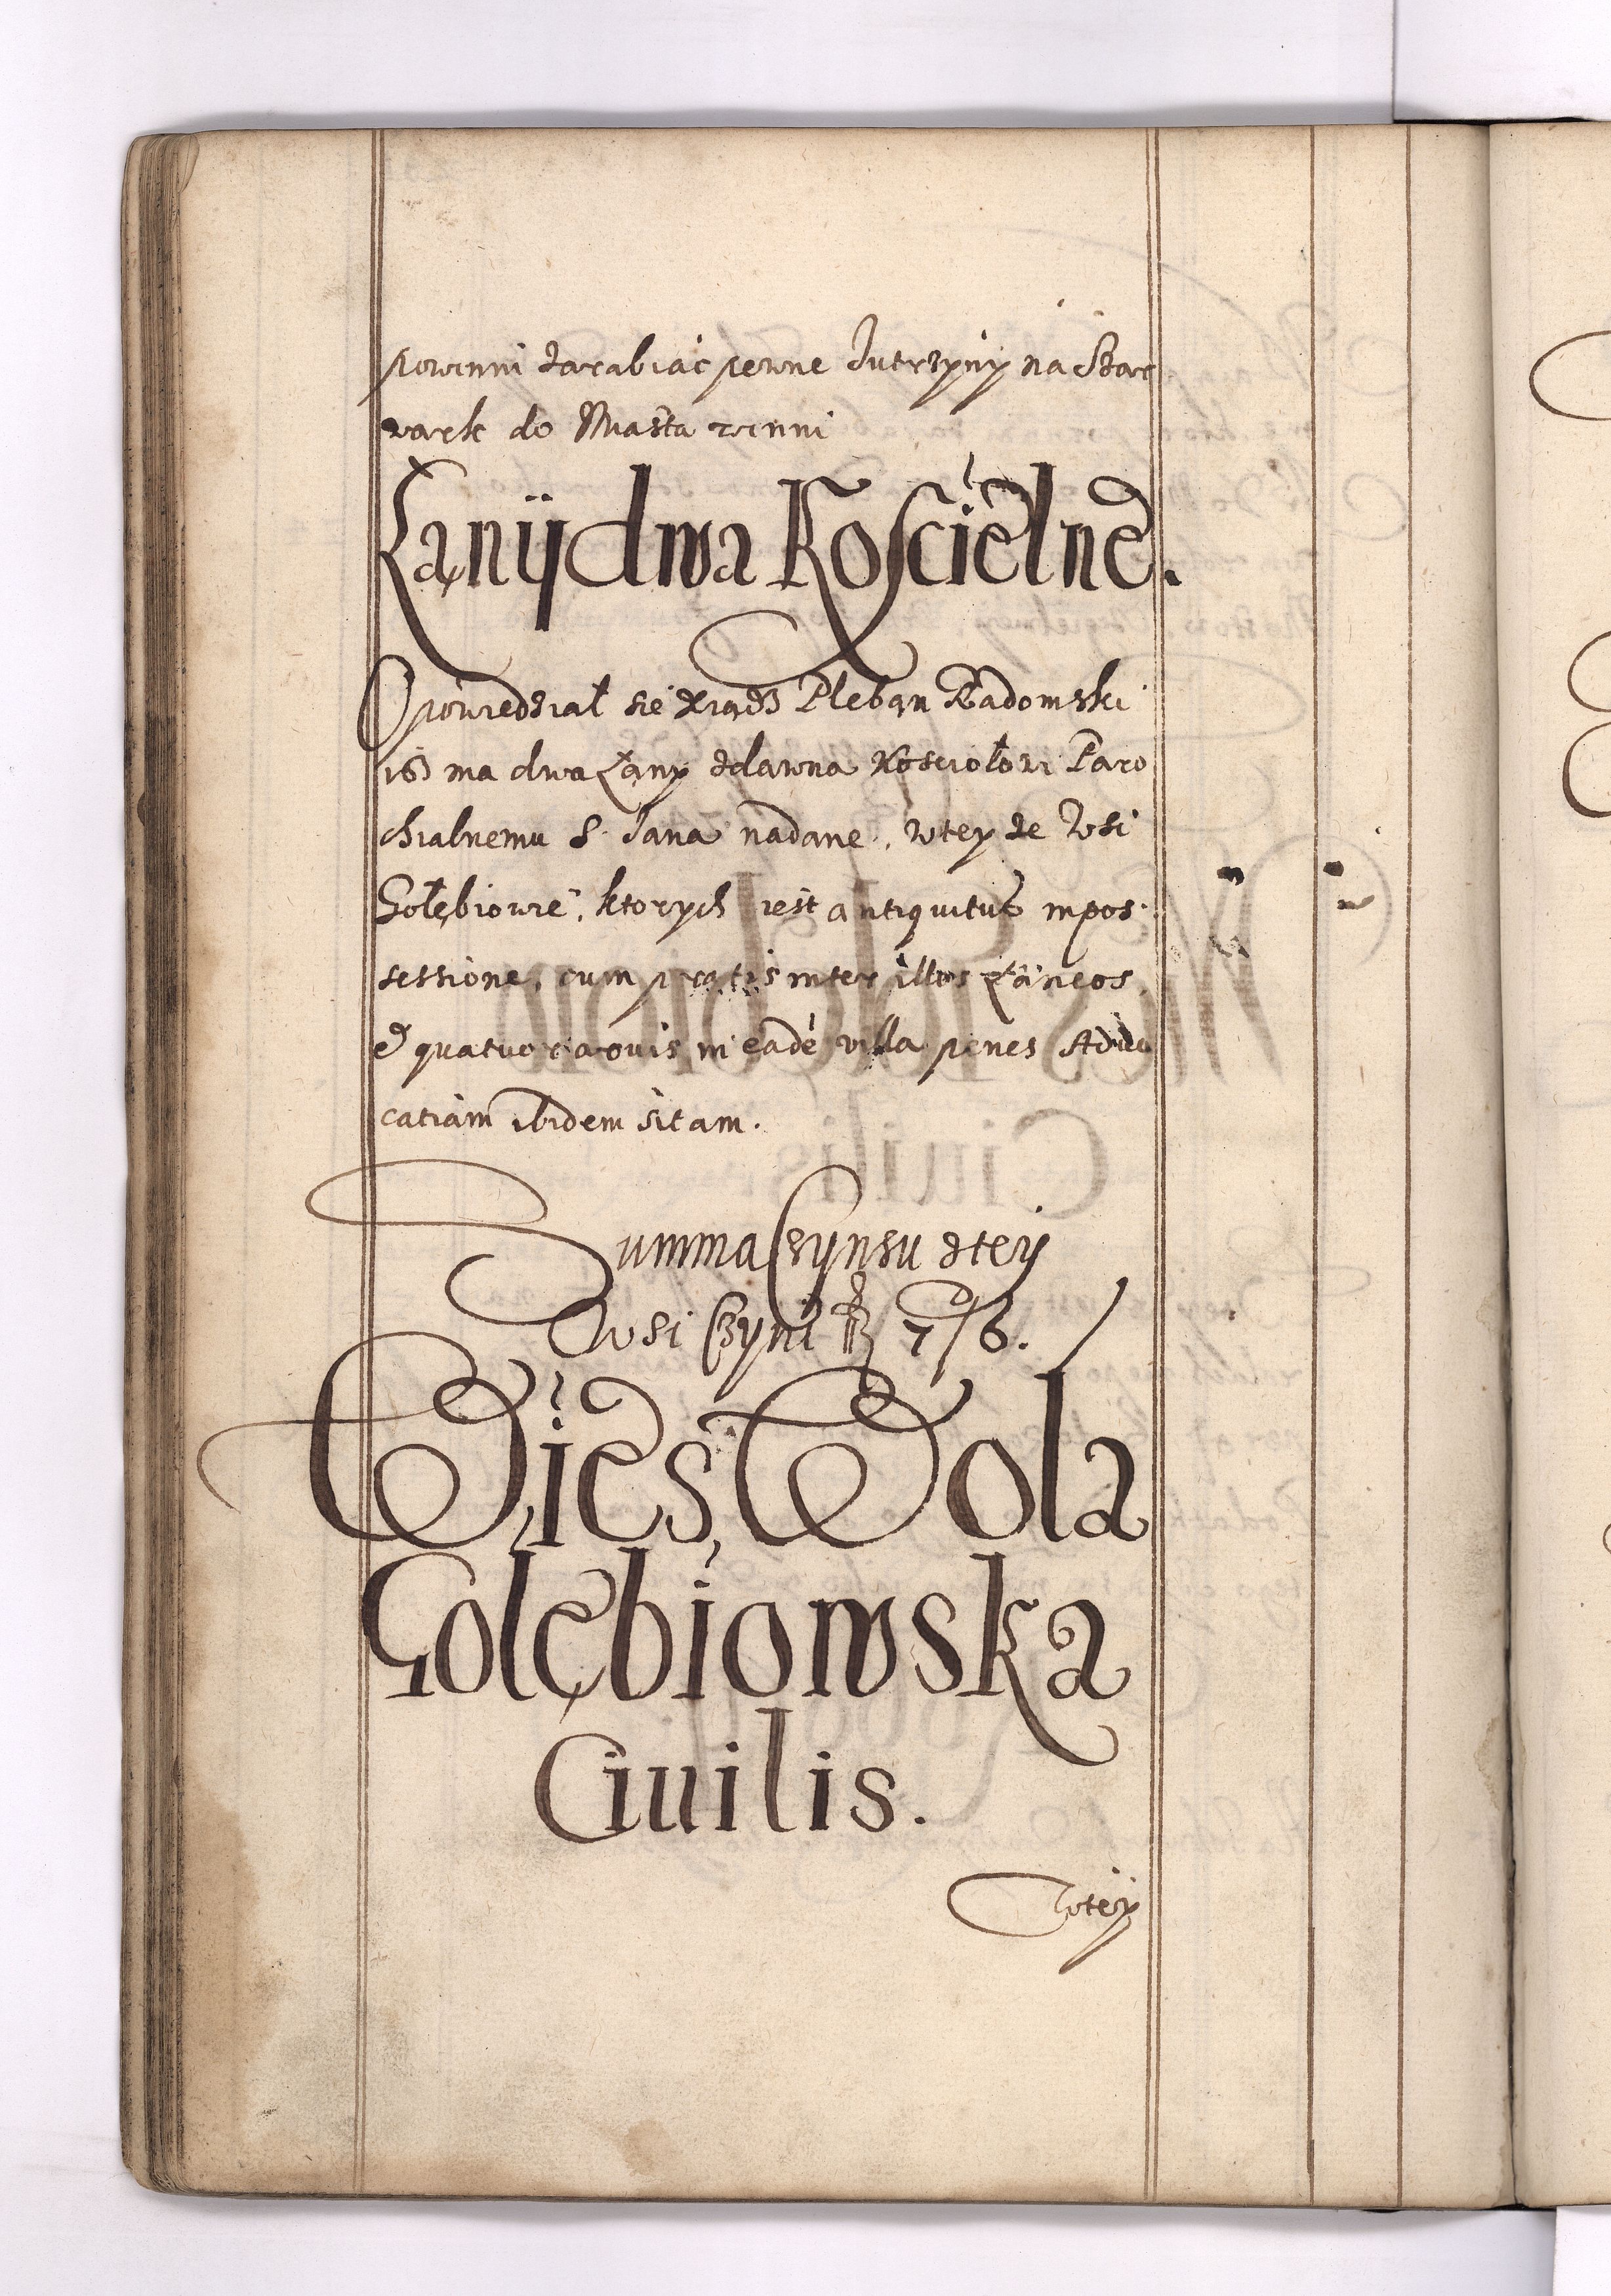 powinni zarabiać pewne Jutrzyny na Szar
wark do Miasta winni
Łanÿ dwa Kościelne.
Opowiedział sie Xiądz Pleban Radomski
isz ma dwa Łany zdawna Kościołowi Paro
chialnemu S. Jana nadane, wtey ze Wsi
Gołębiowie, ktorych iest antiquitus in pos
sessione, cum pratis inter illos Łaneos,
& quatuor in eadē villa penes Advo
catiam ibidem sitam.
Summa Czynszu ztey
Wsi Czyni 7/6.
Wieś Wola
Golębiowska
Ciuilis.
Wtey